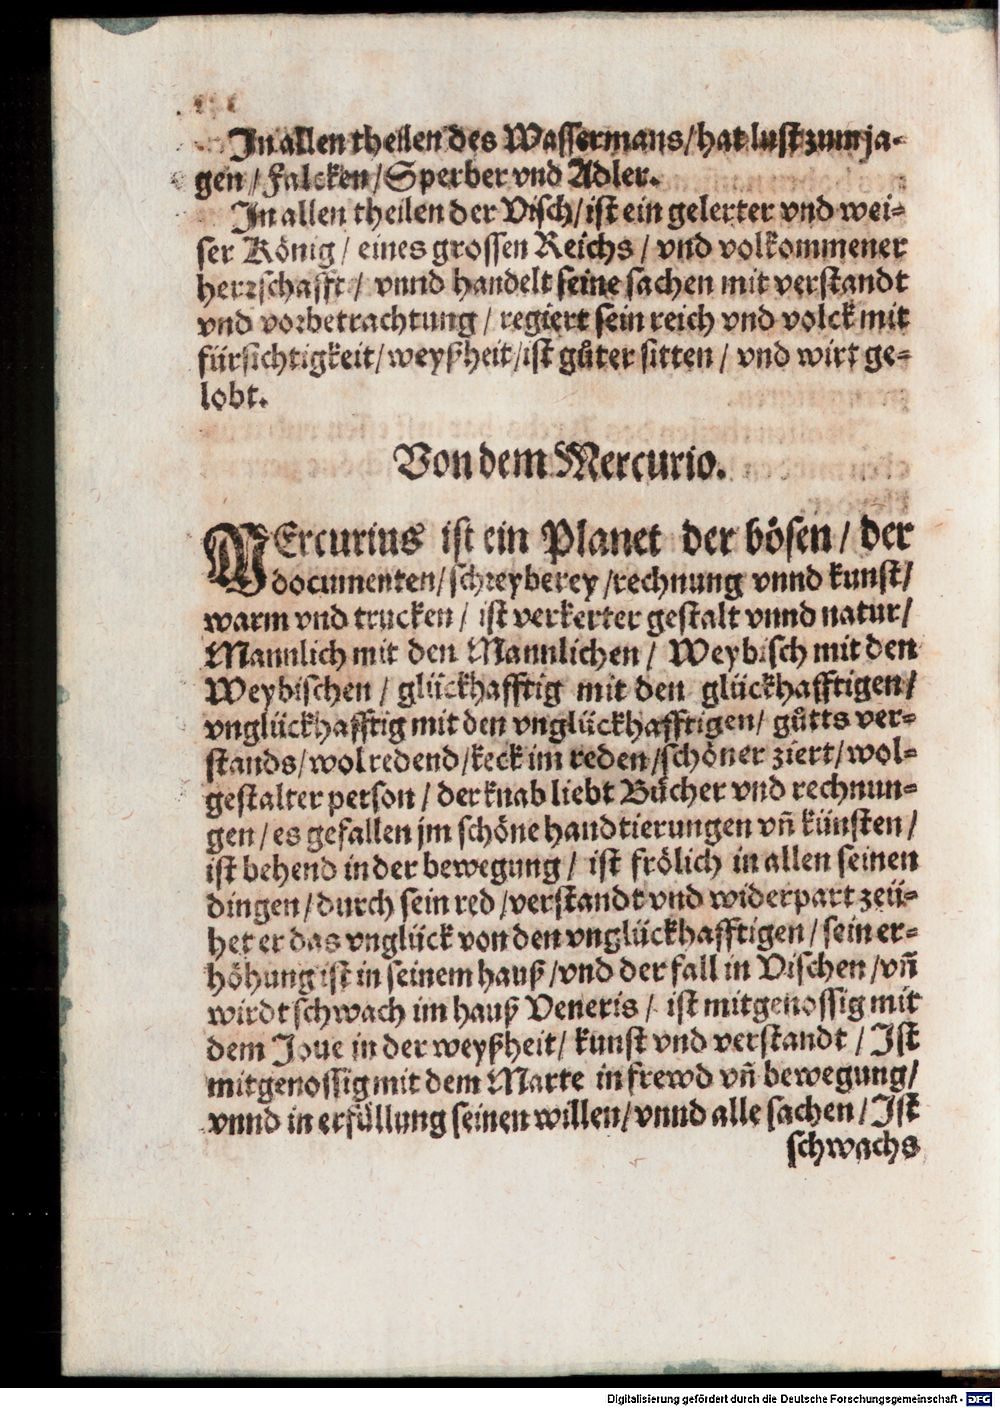 In allen theilen des Wassermans/ hat lust zum ja-
gen/ Falcken/ Sperber vnd Adler.
In allen theilen der Visch/ ist ein gelerter vnd wei-
ser König/ eines grossen Reichs/ vnd volkommener
herrschafft/ vnnd handelt seine sachen mit verstandt
vnd vorbetrachtung/ regiert sein reich vnd volck mit
fürsichtigkeit/ weyßheit/ ist gůter sitten/ vnd wirt ge-
lobt.
Von dem Mercurio.
MErcurius ist ein Planet der bösen/ der
documenten/ schreyberey/ rechnung vnnd kunst/
warm vnd trucken/ ist verkerter gestalt vnnd natur/
Mannlich mit den Mannlichen/ Weybisch mit den
Weybischen/ glückhafftig mit den glückhafftigen/
vnglückhafftig mit den vnglückhafftigen/ gůtts ver-
stands/ wolredend/ keck im reden/ schöner ziert/ wol-
gestalter person/ der knab liebt Bücher vnd rechnun-
gen/ es gefallen jm schöne handtierungen vñ künsten/
ist behend in der bewegung/ ist frölich in allen seinen
dingen/ durch sein red/ verstandt vnd widerpart zeü-
het er das vnglück von den vnglückhafftigen/ sein er-
höhung ist in seinem hauß/ vnd der fall in Vischen/ vñ
wirdt schwach im hauß Veneris/ ist mitgenossig mit
dem Joue in der weyßheit/ kunst vnd verstandt/ Ist
mitgenossig mit dem Marte in frewd vñ bewegung/
vnnd in erfüllung seinen willen/ vnnd alle sachen/ Ist
schwachs
Digitalisierung gefördert durch die Deutsche Forschungsgemeinschaft - DFG